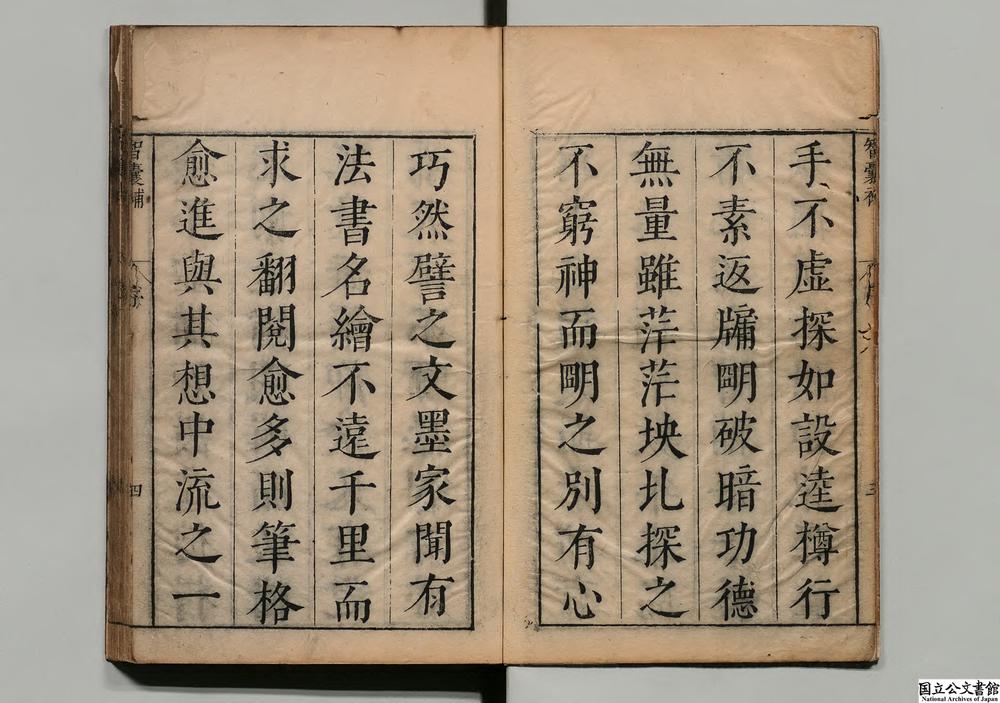 手不虛探如設逵樽行
不素返牖明破暗功德
無量雖茫茫坱圠探之
不窮神而明之別有心
巧然譬之文墨家聞有
法書名繪不遠千里而
求之翻閱愈多則筆格
愈進與其想中流之一
智囊補
序
三
智囊補
序
四
国立公文書館
National Archives of Japan